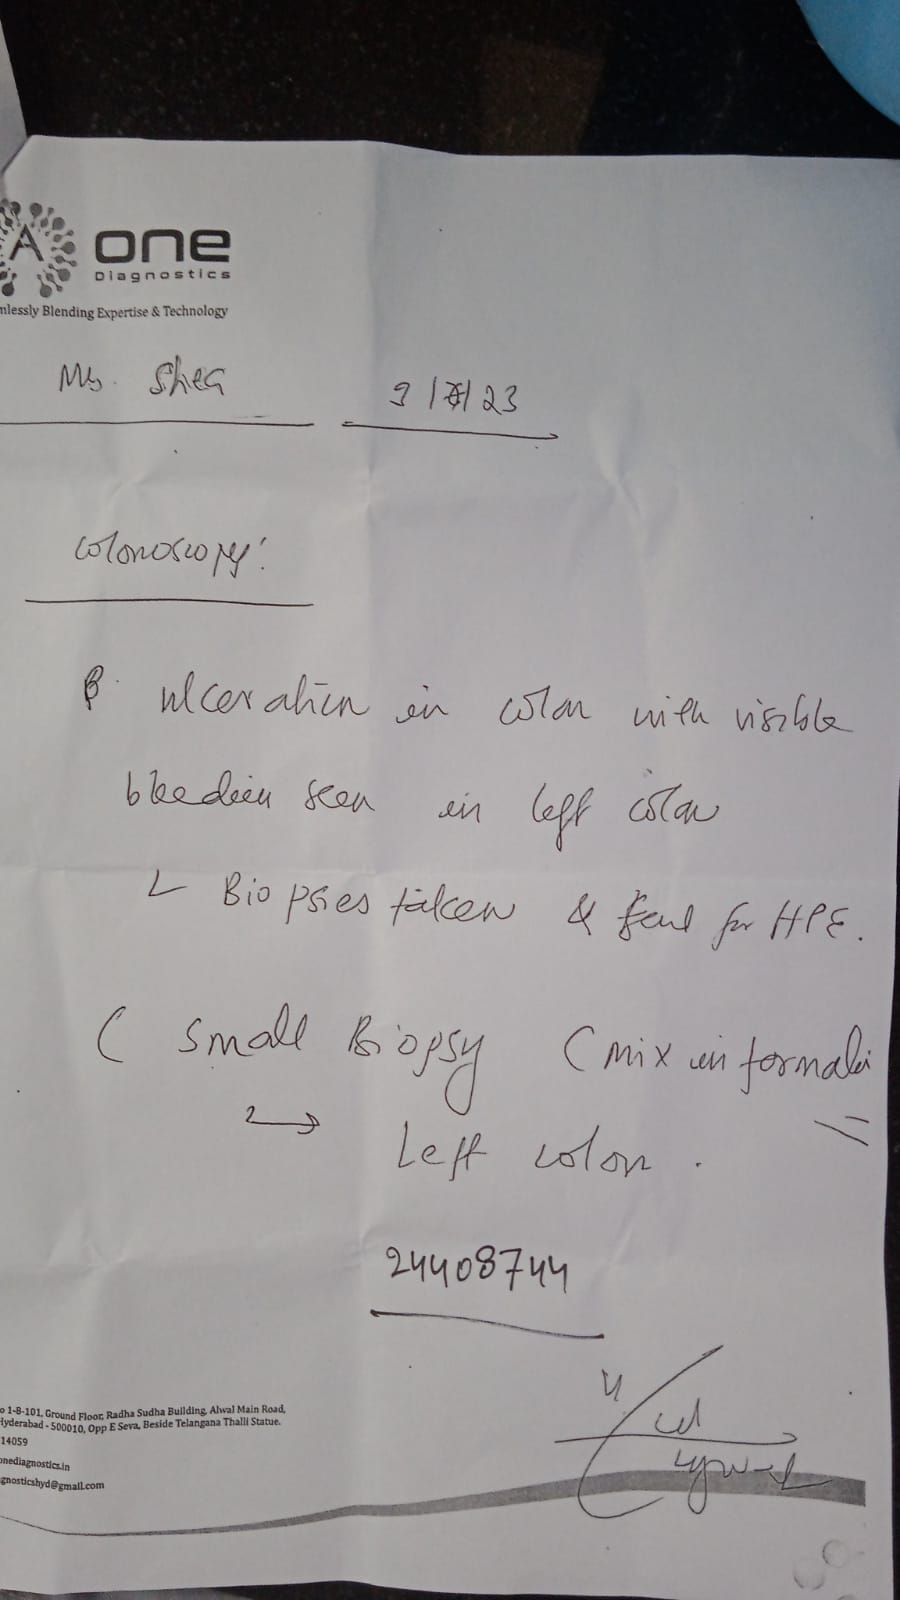 A one
Diagnostics
mlessly Blending Expertise & Technology
Ms. Shea
9/8/23
Colonoscopy:
ulceration in colon with visible
bleedin seen in left colon
Biopsies taken & for HPE.
( Small Biopsy ( mix in formali
Left colon.
24408744
o 1-8-101, Ground Floor, Radha Sudha Building, Alwal Main Road,
Hyderabad - 500010, Opp E Seva, Beside Telangana Thalli Statue.
14059
onediagnostics.in
gnosticshyd@gmail.com